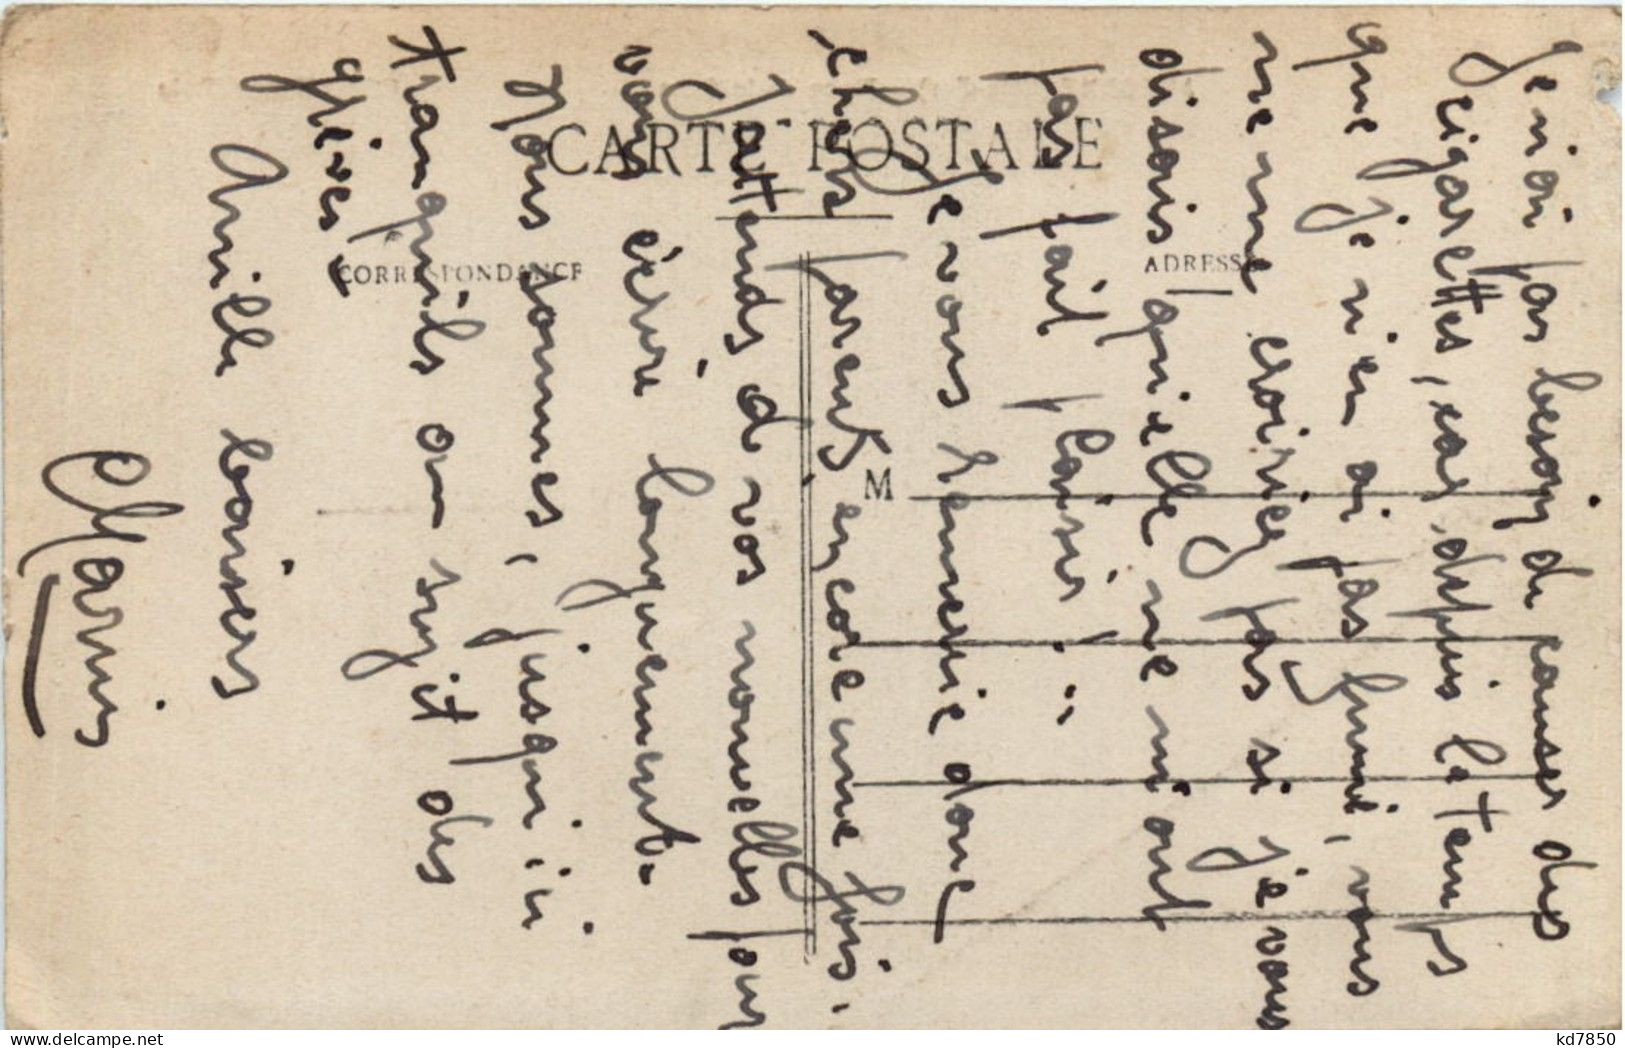 Je n'ai pas besoin de causer des
cigarettes, car depuis le temps
que je n'en ai pas fumé, vous
ne me croiriez pas si je vous
disais qu'elle ne m'ont
pas fait plaisir !!
Je vous remercie donc
chers parents encore une fois.
J'attends d vos nouvelles pour
vous écrire longuement.
Nous sommes, jusqu'ici
tranquils au sujet des
grèves.
Mille baisers
Marius
CARTE POSTALE
CORRESPONDANCE
ADRESSE
M
kd7850